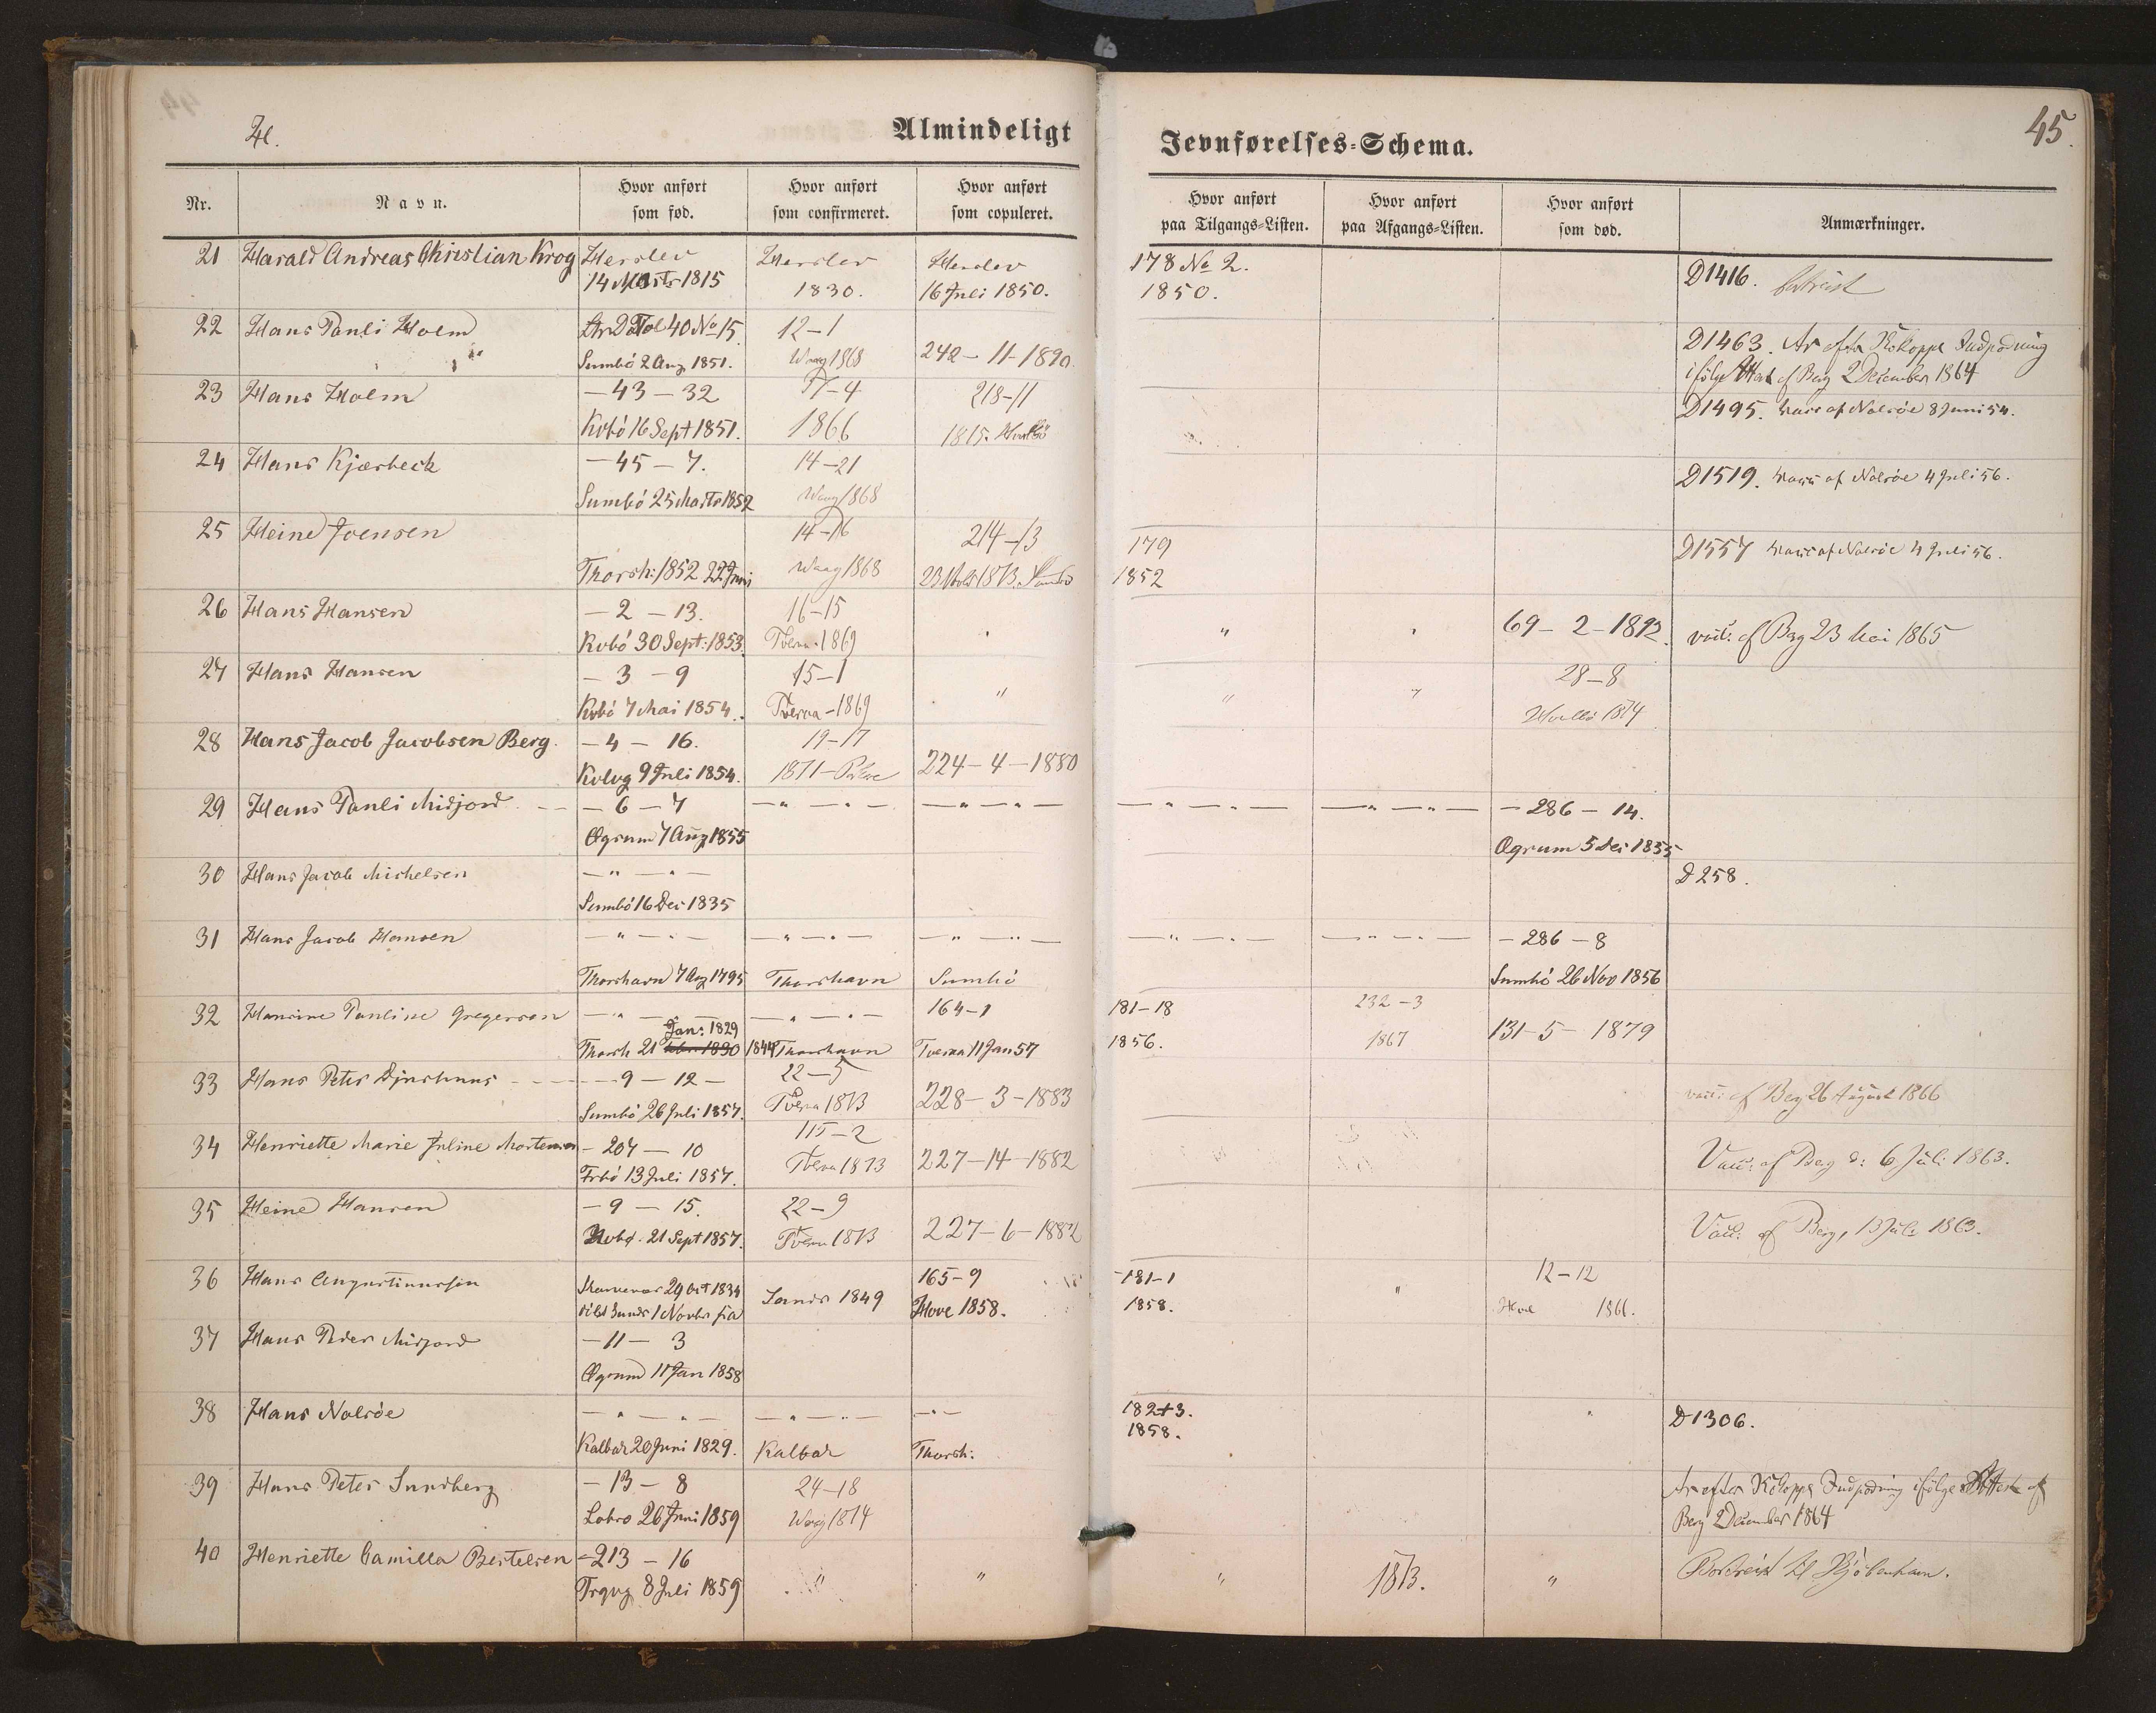 H.
Almindeligt Jevnførelses=Schema.
45.
Nr.
Navn.
Hvor anført som fød.
Hvor anført som confirmeret.
Hvor anført som copuleret.
Hvor anført paa Tilgangs=Listen.
Hvor anført paa Afgangs=Listen.
Hvor anført som død.
Anmærkninger.
21 Harald Andreas Christian Krog Herslev Herslev Herslev 178 No 2. D1416.
14 Marts 1815 1830. 16 Juli 1850. 1850.
22 Hans Pauli Holm 40 No 15 12-1 D1463. Ar efter Kokoppe Indpodning
Sumbö 2 Aug 1851. Waag 1868 242-11-1890. ifölge Attest af Berg 2 December 1864
23 Hans Holm -43-32 17-4 218-11 D1495. vacc af Nolsöe 8 Juni 54.
Kvbö 16 Sept 1851. 1866
24 Hans Kjærbeck -45-7. 14-21 D1519. vacc af Nolsöe 4 Juli 56.
Sumbö 25 Marts 1852 Waag 1868
25 Heine Joensen 14-16 214-13 179 D1557 vacc af Nolsöe 4 Juli 56.
Thorsh: 1852 22 Juni Waag 1868 1873. Sumbö 1852
26 Hans Hansen -2-13. 16-15 69-2-1892. vacc: af Berg 23 Mai 1865
Kvbö 30 Sept: 1853. Tveraa-1869 " "
27 Hans Hansen -3-9 15-1 28-8
Kvbö 7 Mai 1854. Tveraa-1869 " " " 1874
28 Hans Jacob Jacobsen Berg. -4-16. 19-17 224-4-1880
Kvlvg 9 Juli 1854. 1871-
29 Hans Pauli Midjord -6-7 -"-"- -"-"- -"-"- -"-"- -286-14.
Øgrum 7 Aug 1855 Øgrum 5 Dec 1855
30 Hans Jacob Michelsen -"-"- D258.
Sumbö 16 Dec 1835
31 Hans Jacob Hansen -"-"- -"-"- -"-"- -"-"- -"-"- -286-8
Thorshavn 7 Aug 1795 Thorshavn Sumbö Sumbö 26 Nov 1856
32 Hansine Pauline Gregersen -"-"- -"-"- 164-1 181-18 232-3 131-5-1879
Jan: 1829
Thorsh 21 1830 1844 Thorshavn Tveraa 11 Jan 57 1856. 1867
33 Hans Peter Djurhuus -9-12- 22-5 228-3-1883 vacc: af Berg 26 August 1866
Sumbö 26 Juli 1857. Tveraa 1873
34 Henriette Marie Juline Mortensen -207-10 115-2 227-14-1882 Vacc: af Berg d: 6 Juli 1863.
Frbö 13 Juli 1857. Tveraa 1873
35 Heine Hansen -9-15. 22-9 227-6-1882 Vacc: af Berg, 13 Juli 1863.
21 Sept 1857. Tveraa 1873
36 Hans Augustinussen 29 Oct 1834 Sands 1849 165-9 181-1 " 12-12
1 Novbr Hove 1858. 1858. Hove 1866.
37 Hans Peder Midjord -11-3
Øgrum 11 Jan 1858
38 Hans Nolsöe -"-"- -"-"- -"- 182+3. D1306.
Kalbak 20 Juni 1829. Kalbak Thorsh: 1858.
39 Hans Peter Sundberg -13-8 24-18 Ar efter Kokoppe Indpodning ifölge Attest af
Lobro 26 Juni 1859 Waag 1874 Berg 2 December 1864
40 Henriette Camilla Bertelsen -213-16 " " " 1873. " Bortreist til Kjöbenhavn.
Trgvg 8 Juli 1859